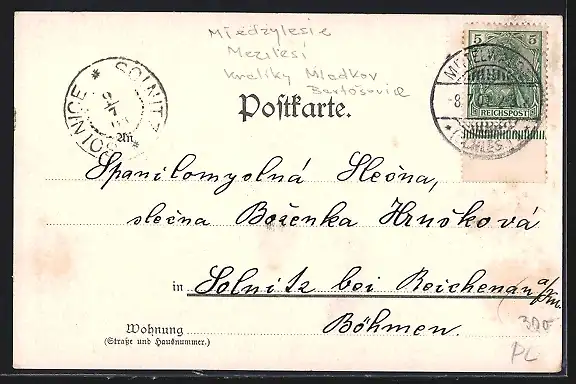 Międzylesie
Mezilesí
Kraliky Mladkov
Bartošovice
5 5
REICHSPOST
MITTELWALDE
(SCHLES.)
SOLNITZ
SOLNICE
Postkarte.
An
Spanilomyslná Slečna,
slečna Boženka Hrušková
in Solnitz bei Reichenau a/Kn.
Böhmen.
Wohnung
(Straße und Hausnummer.)
300
PL